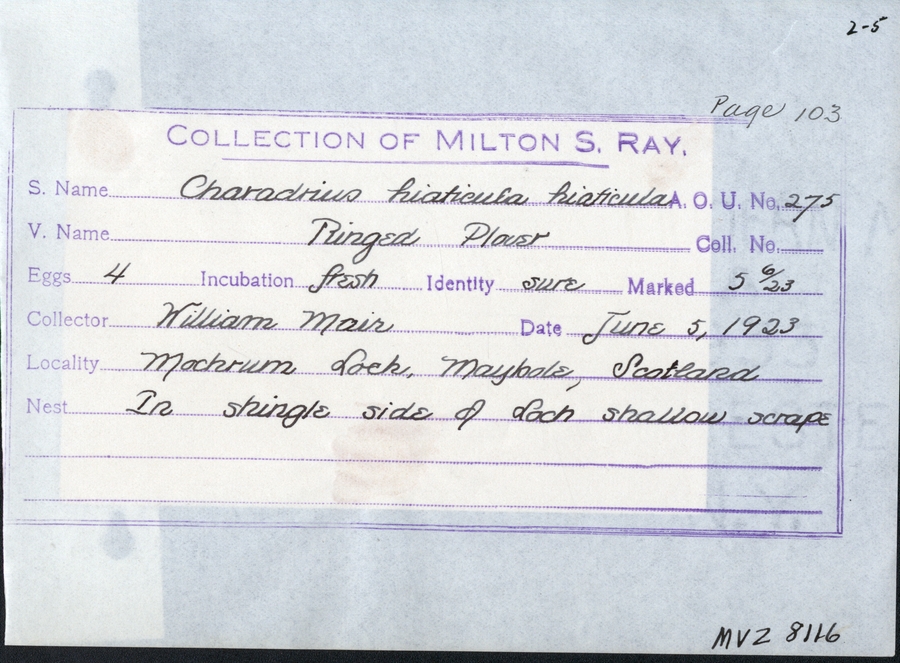 2-5
Page 103
COLLECTION OF MILTON S. RAY.
S. Name Charadrius hiaticula hiaticula A. O. U. No. 275
V. Name Ringed Plover Coll. No.
Eggs 4 Incubation fresh Identity sure Marked 5 6/23
Collector William Mair Date June 5, 1923
Locality Mochrum Loch, Maybole, Scotland
Nest In shingle side of Loch shallow scrape
MVZ 8116